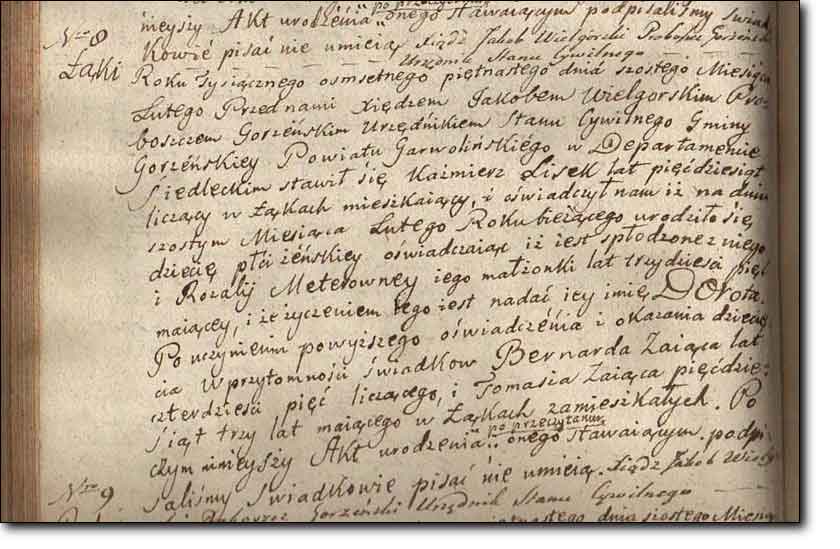 po prze
nieyszy Akt urodzenia onego stawaiącym podpisaliśmy swiad
Nro 8 kowie pisać nie umieią Xiądz Jakob Wielgórski Proboszcz Gorzeńsk
Łąki
Urzęnu Stanu Cywilnego
Roku tysiącznego osmsetnego piętnastego dnia szostego Miesiąca
Lutego Przednami Xiędzem Jakobem Wielgorskim Pro-
boszczem Gorzeńskim Urzędnikiem Stanu Cywilnego Gminy
Gorzéńskiey Powiatu Garwolińskiégo w Departamencie
Siedleckim stawił się Kaźmierz Lisek lat pięćdziesiąt
liczący w Łąkach mieszkaiący, i oświadczył nam iż na dniu
szostym Miesiąca Lutego Roku bieżącego urodziło się
dziecię płci żéńskiey oświadczaiąc iż iest spłodzone z niego
i Rozalij Meterowney iego małżonki lat trzydzieści pięć
maiącey, i że życzeniem iego iest nadać iey imię Dorota.
Po uczynieniu powyższego oświadczénia i okazania dziecię-
cia w przytomności świadkow Bernarda Zaiąca lat
czterdzieści pięć liczącego, i Tomasza Zaiąca pięćdzie-
siąt trzy lat maiącego w Łąkach zamieszkałych. Po
po przeczytaniu
czym ninieyszy Akt urodzenia onego stawaiącym podpi-
saliśmy Swiadkowie pisać nie umieią. Xiądz Jakob Wielg
Nro 9 Proboszcz Gorzeński Urzędnik Stanu Cywilnego
piętnastego dnia szostego Miesią